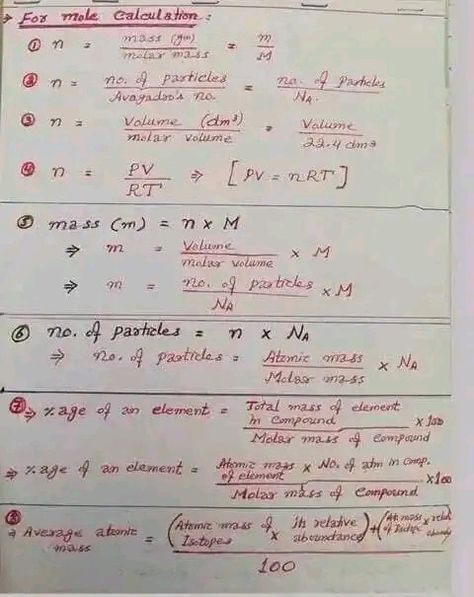 → For mole Calculation :
① n = mass (gm) / molar mass = m / M
② n = no. of particles / Avagadro's no. = no. of particles / NA.
③ n = Volume (dm³) / molar volume = Volume / 22.4 dm³
④ n = PV / RT ⇒ [PV = nRT]
⑤ mass (m) = n × M
⇒ m = Volume / molar volume × M
⇒ m = no. of particles / NA × M
⑥ no. of particles = n × NA
⇒ no. of particles = Atomic mass / Molar mass × NA
⑦ ⇒ %age of an element = Total mass of element in Compound / Molar mass of Compound × 100
⇒ %age of an element = Atomic mass of element × No. of atm in Comp. / Molar mass of Compound × 100
⑧ ⇒ Average atomic mass = (Atomic mass of Isotopes × its relative aboundance) + (At. mass of Isotope ×) / 100